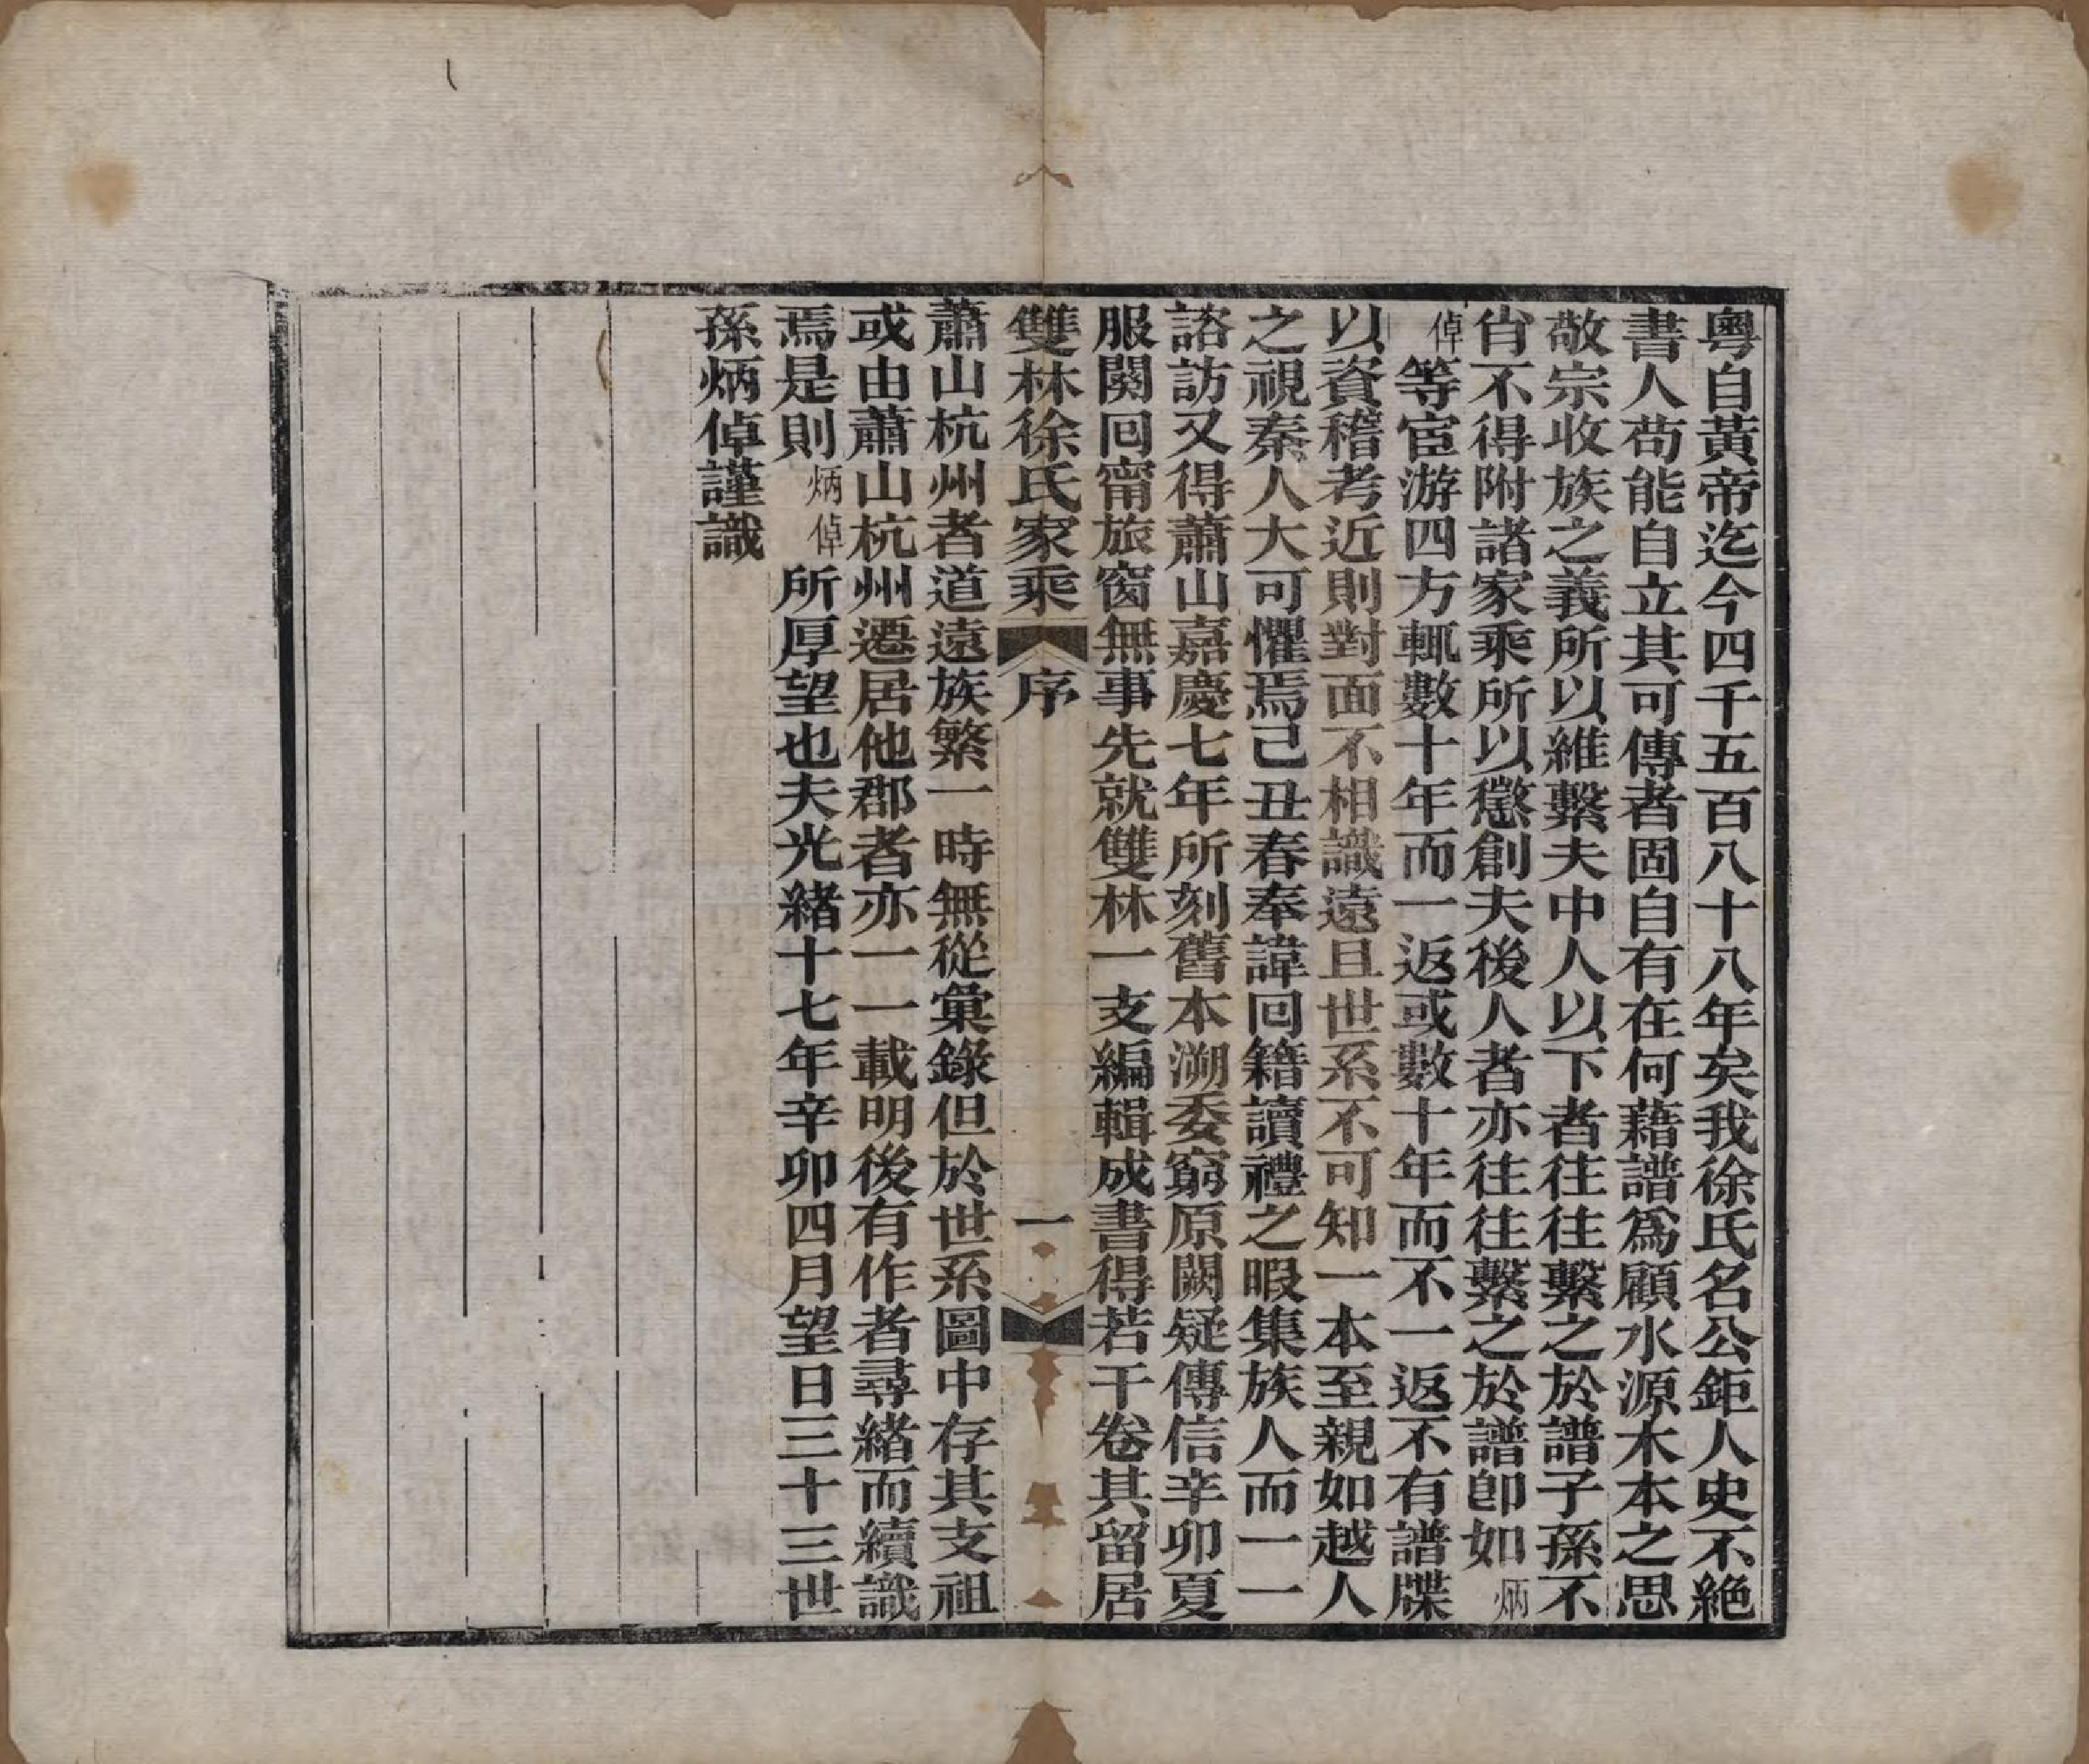 粵自黃帝迄今四千五百八十八年矣我徐氏名公鉅人史不絕
書人苟能自立其可傳者固自有在何藉譜爲顧水源木本之思
敬宗收族之義所以維繫夫中人以下者往往繫之於譜子孫不
肖不得附諸家乘所以懲創夫後人者亦往往繫之於譜卽如炳
倬等宦游四方輒數十年而一返或數十年而不一返不有譜牒
以資稽考近則對面不相識遠且世系不可知一本至親如越人
之視秦人大可懼焉己丑春奉諱回籍讀禮之暇集族人而一一
諮訪又得蕭山嘉慶七年所刻舊本溯委窮原闕疑傳信辛卯夏
服闋回甯旅窗無事先就雙林一支編輯成書得若干卷其留居
雙林徐氏家乘 序 一
蕭山杭州者道遠族繁一時無從彙錄但於世系圖中存其支祖
或由蕭山杭州遷居他郡者亦一一載明後有作者尋緒而續識
焉是則炳倬所厚望也夫光緒十七年辛卯四月望日三十三世
孫炳倬謹識